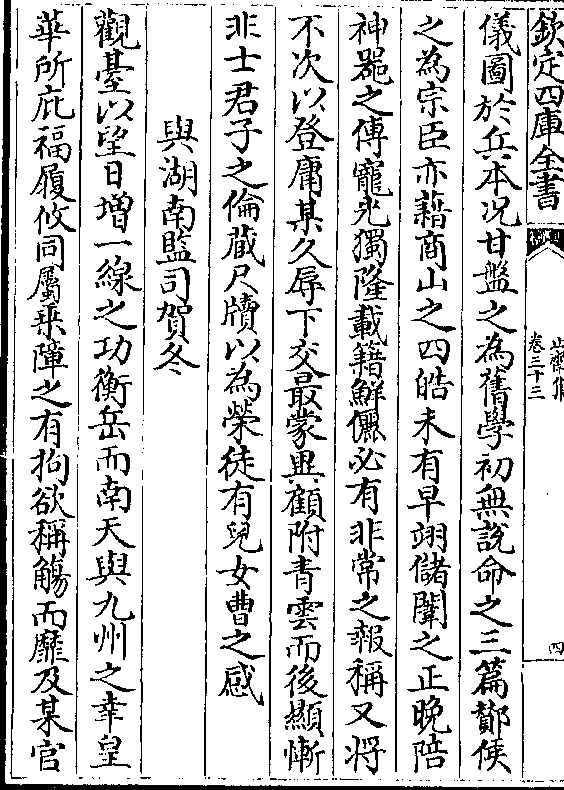 欽定四庫全書
止齋集
卷三十三
四
儀圖於兵本况甘盤之為舊學初無說命之三篇鄼侯
之為宗臣亦藉商山之四皓未有早翊儲闈之正晚陪
神器之傳寵光獨隆載籍鮮儷必有非常之報稱又將
不次以登庸某久辱下交最蒙異顧附青雲而後顯慚
非士君子之倫蔵尺牘以為榮徒有兒女曹之感
與湖南監司賀冬
觀臺以望日增一線之功衡岳而南天與九州之幸皇
華所庇福履攸同屬乗障之有拘欲稱觴而靡及某官